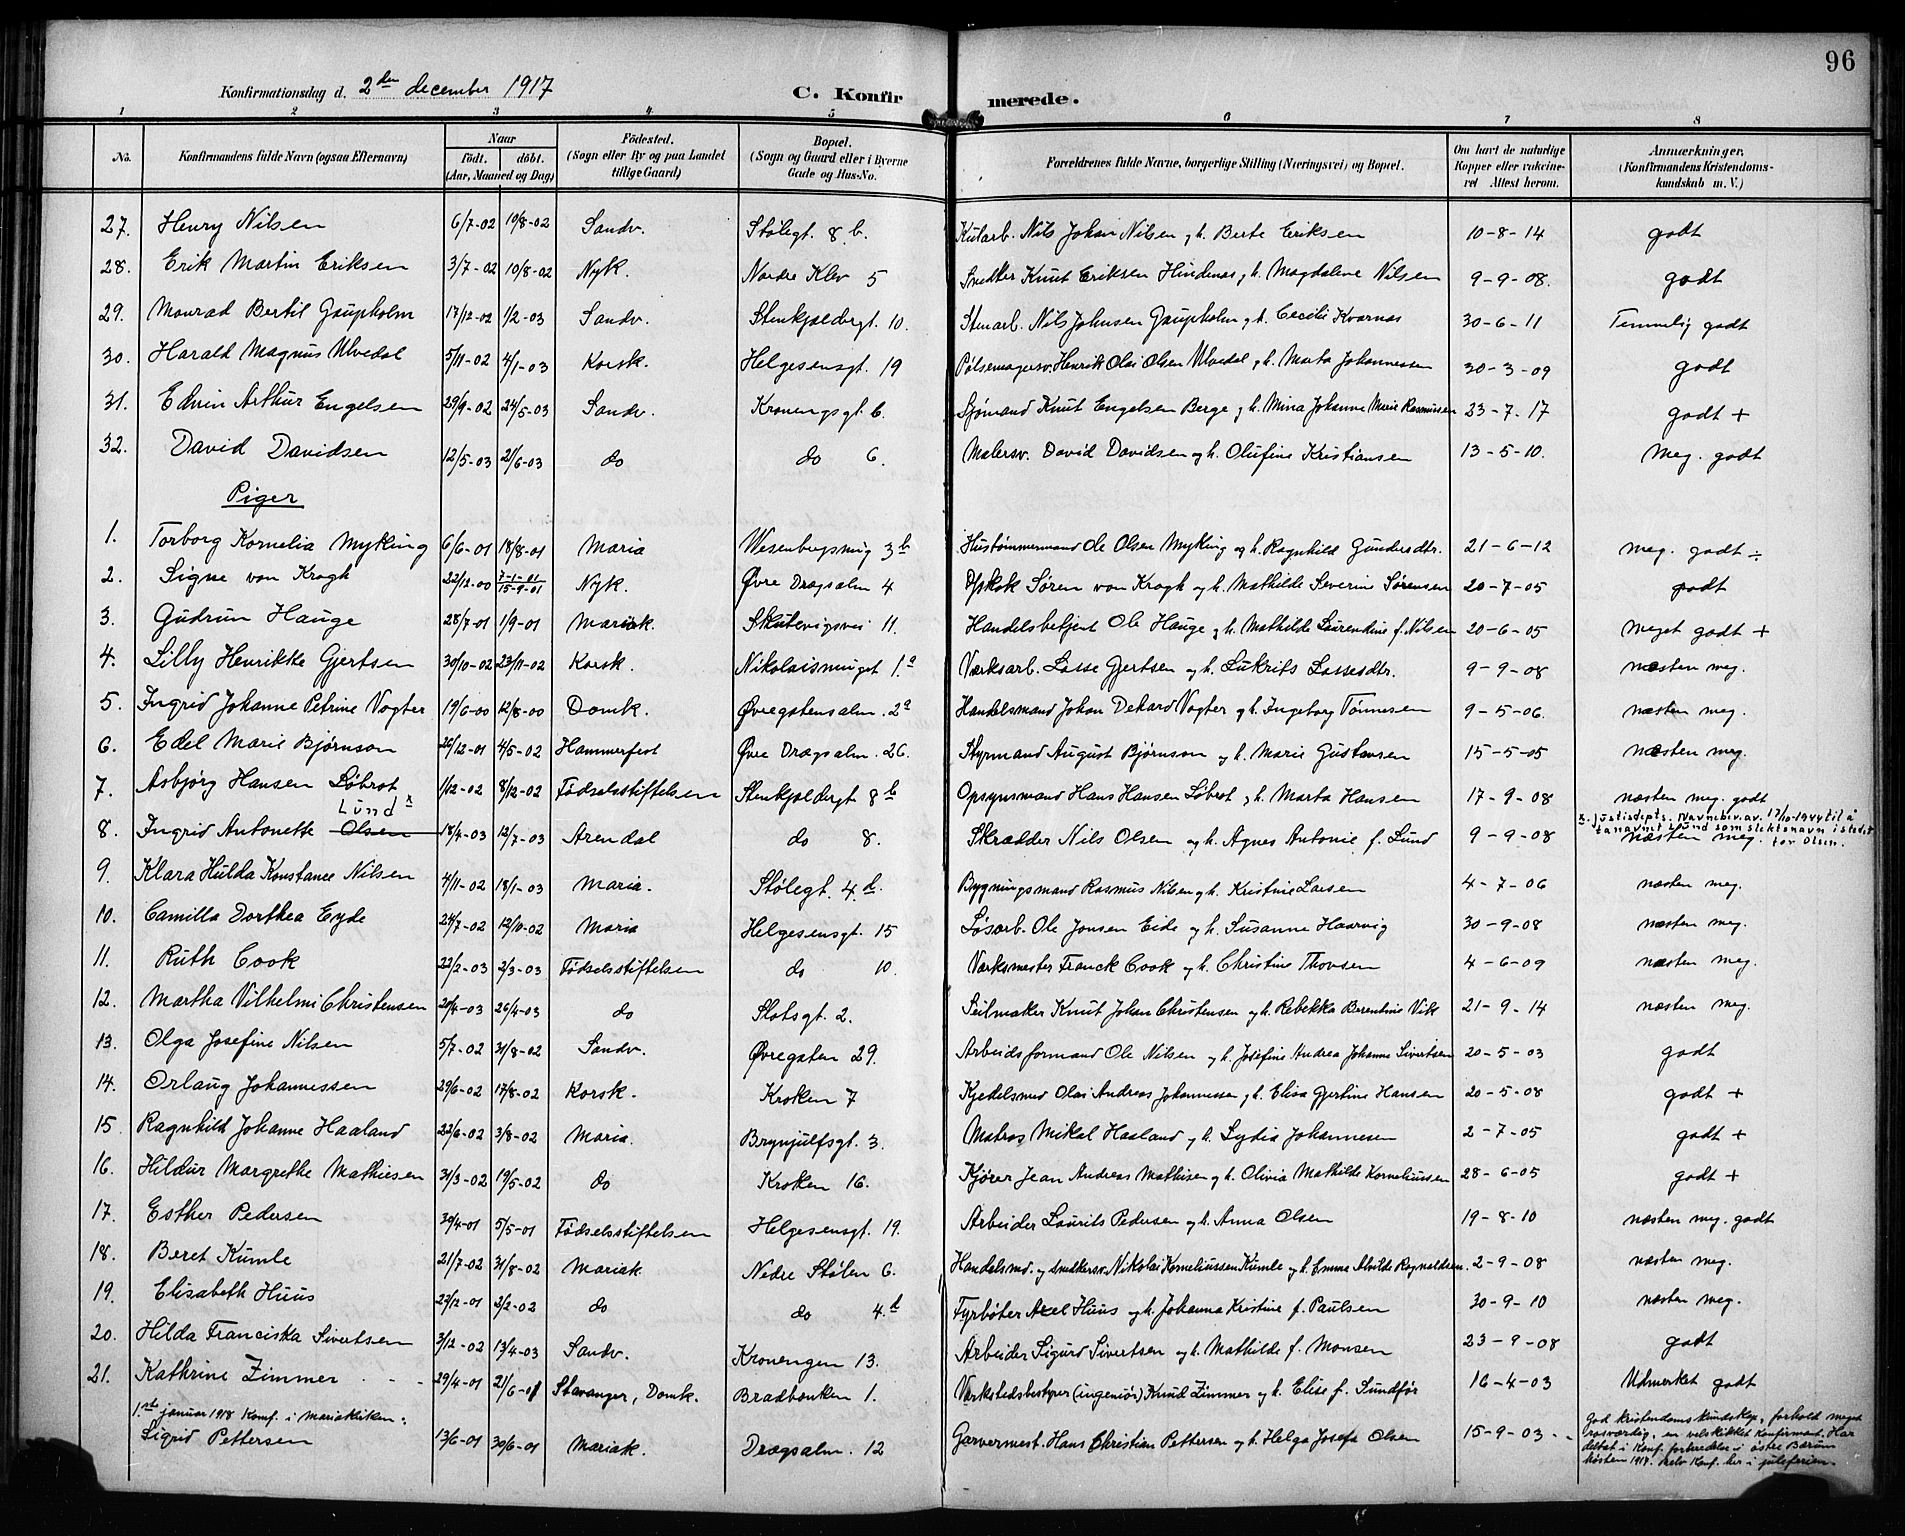 96
Konfirmationsdag d. 2den december 1917 C. Konfirmerede.
1 2 3 4 5 6 7 8
No. Konfirmandens fulde Navn (ogsaa Efternavn) Naar født. døbt. (Aar, Maaned og Dag) Fødested. (Sogn eller By og paa Landet tillige Gaard) Bopæl. (Sogn og Gaard eller i Byerne Gade og Hus-No. Forældrenes fulde Navne, borgerlige Stilling (Næringsvei) og Bopæl. Om havt de naturlige Kopper eller vakcineret Attest herom. Anmærkninger, (Konfirmandens Kristendomskundskab m. V.)
27. Henry Nilsen 6/7-02 10/8-02 Sandv. Stølegt. 8 b. Kularb. Nils Johan Nilsen og h. Berte Eriksen 10-8-14 godt
28. Erik Martin Eriksen 3/7-02 10/8-02 Nyk. Nordre Klv 5 Snedker Knut Eriksen Hindenas og h. Magdalene Nilsen 9-9-08. godt
29. Monrad Bertil Gaupholm 17/12-02 1/2-03 Sandv. Stenkjeldergt. 10. Stuarb. Nils Johnsen Gaupholm og h. Cecilie Kvarnas 30-6-11 Temmelig godt
30. Harald Magnus Ulvedal 5/11-02 4/1-03 Korsk. Helgesensgt. 19 Pølsemagersv. Henrik Olai Olsen Ulvedal og h. Marta Johannessen 30-3-09 godt
31. Edvin Arthur Engelsen 29/9-02 24/5-03 Sandv. Kroningsgt. 6. Sjømand Knut Engelsen Berge og h. Mina Johanne Marie Rasmussen 23-7-17 godt +
32. David Davidsen 12/5-03 21/6-03 do do 6. Malersv. David Davidsen og h. Olufine Kristiansen 13-5-10. Meg. godt
Piger
1. Torborg Kornelia Myking 6/6-01 18/8-01 Maria Wesenbergsmug 3b Hustømmermand Ole Olsen Myking og h. Ragnhild Gundersdtr. 21-6-12 meg. godt ÷
2. Signe von Krogh 22/12-00 7-1-01 15-9-01 Nyk. Øvre Dragsalm 4 Opkok Søren von Krogh og h. Mathilde Severine Sørensen 20-7-05 godt
3. Gudrun Hauge 28/7-01 1/9-01 Mariak. Skutevigsvei 11. Handelsbetjent Ole Hauge og h. Mathilde Laurendine f. Nilsen 20-6-05 meget godt +
4. Lilly Henrikke Gjertsen 30/10-02 23/11-02 Korsk. Nikolaismuget 1.a Værksarb. Lasse Gjertsen og h. Lukrits Lassesdtr. 9-9-08 næsten meg.
5. Ingrid Johanne Petrine Vogter 19/6-00 12/8-00 Domk. Øvregatensalm. 2a Handelsmand Johan Dekard Vogter og h. Ingeborg Tønnesen 9-5-06. næsten meg.
6. Edel Marie Bjørnson 26/12-01 4/5-02 Hammerfest Øvre Dragsalm. 26. Styrmand August Bjørnson og h. Marie Gustansen 15-5-05 næsten meg.
7. Asbjørg Hansen Løbrot 1/12-02 8/12-02 Fødselsstiftelsen Stenkjeldergt 8b Opsynsmand Hans Hansen Løbrot og h. Marta Hansen 17-9-08 næsten meg. godt
Lund x
x. justisdepts. Navnebev. av. 17/10-1944 til å
ta navnet Lund som slektsnavn istedet
8. Ingrid Antonette Olsen 18/4-03 12/7-03 Arendal do 8. Skrædder Nils Olsen og h. Agnes Antonie f. Lund 9-9-08 næsten meg. for Olsen.
9. Klara Hulda Konstance Nilsen 4/11-02 18/1-03 Maria. Stølegt. 4 d. Bygningsmand Rasmus Nilsen og h. Kristine Larsen 4-7-06 næsten meg.
10. Camilla Dorthea Eyde 24/7-02 12/10-02 Maria Helgesensgt. 15 Løsarb. Ole Jonsen Eide og h. Susanne Haarvig 30-9-08 næsten meg.
11. Ruth Cook 22/2-03 2/3-03 Fødselsstiftelsen do 10. Værksmester Franck Cook og h. Christine Thovsen 4-6-09 næsten meg.
12. Martha Vilhelmi Christensen 20/4-03 26/4-03 do Slotsgt. 2. Seilmaker Knut Johan Christensen og h. Rebekka Berentine Vik 21-9-14 næsten meg.
13. Olga Josefine Nilsen 5/7-02 31/8-02 Sandv. Øvregaten 29. Arbeidsformand Ole Nilsen og h. Josefine Andrea Johanne Sivertsen 20-5-03 godt
14. Orlaug Johannessen 29/6-02 17/8-02 Korsk. Kroken 7 Kjedelsmed Olai Andreas Johannessen og h. Elisa Gjertine Hansen 20-5-08 godt +
15. Ragnhild Johanne Haaland 22/6-02 3/8-02 Maria. Brynjulfsgt. 3. Matros Mikal Haaland og h. Lydia Johannesen 2-7-05 godt +
16. Hildur Margrethe Mathiesen 31/3-02 19/5-02 do Kroken 16. Kjører Jean Andreas Mathisen og h. Olivia Mathilde Korneliussen 28-6-05 godt +
17. Esther Pedersen 30/4-01 5/5-01 Fødselsstiftelsen Helgesensgt. 19. Arbeider Laurits Pedersen og h. Anna Olsen 19-8-10 næsten meg. godt
18. Beret Kumle 21/7-02 31/8-02 Mariak. Nedre Stølen 6. Handelsmd. og snedkersv. Nikolai Korneliussen Kumle og h. Emma Alvilde Reynoldsen. 2-9-08 næsten meg.
19. Elisabeth Huus 29/12-01 2/2-02 do do 4.d Fyrbøter Axel Huus og h. Johanna Kristine f. Paulsen 30-9-10 næsten meg.
20. Hilda Franciska Sivertsen 3/12-02 13/4-03 Sandv. Kronengen 13. Arbeider Sigurd Sivertsen og h. Mathilde f. Monsen 23-9-08 godt
21. Kathrine Zimmer 29/4-01 21/6-01 Stavanger, Domk. Bradbenken 1. Værkstedsbestyrer (ingeniør) Knud Zimmer og h. Elise f. Sundfør 16-4-03 Udmerket godt
1.st januar 1918 Konf. i Mariakirken:
Sigrid Pettersen 13/6-01 30/6-01 Mariak. Dragsalm. 12 Garvermest. Hans Christian Pettersen og h. Helga Josefa Olsen 15-9-03
God kristendomskundskap, forhold meget
rosværdig, en velskikket Konfirmant. Har
deltat i Konf. forberedelse i østre Bærum
høsten 1917. Selv Konf. her i juleferien.